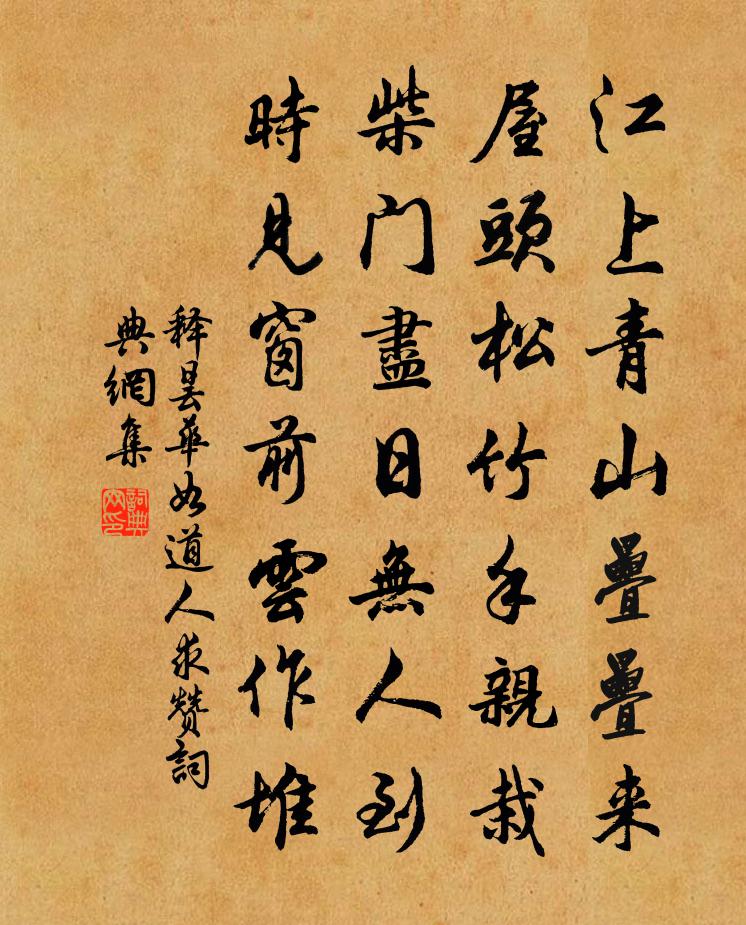 江上青山疊疊来
屋頭松竹手親栽
柴門盡日無人到
時見窗前雲作堆
释曇華如道人求赞詞
典網集
詞典网印